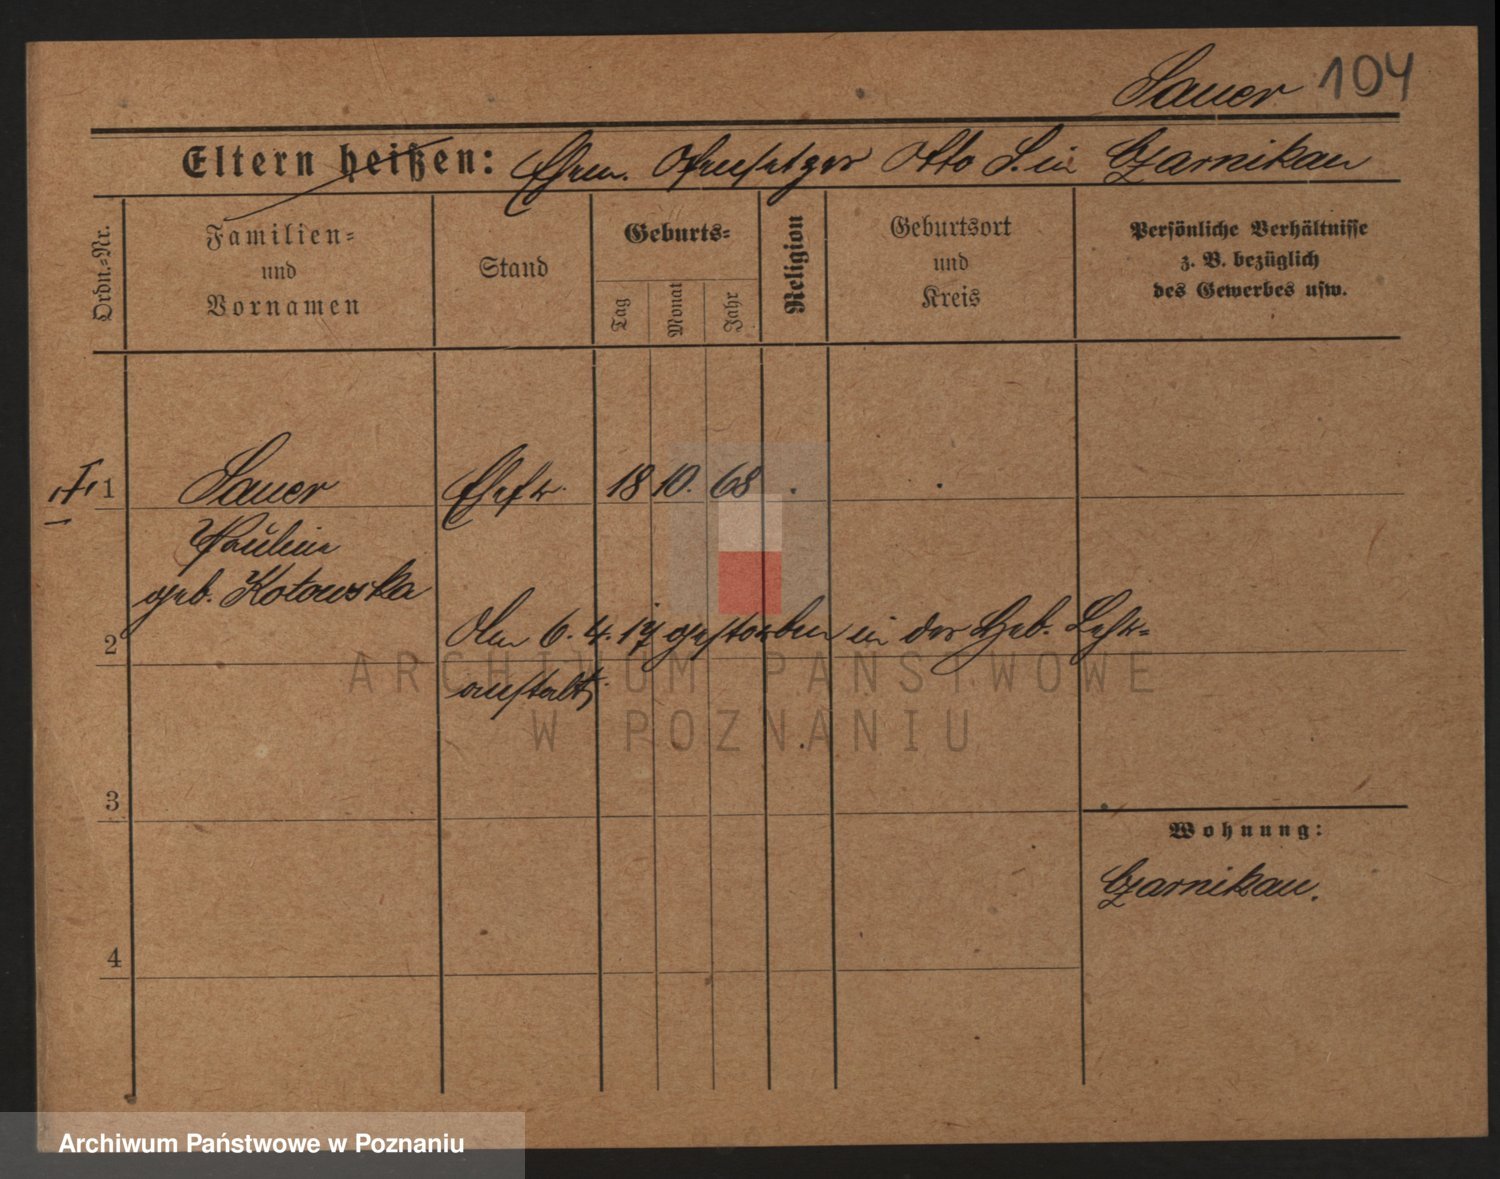 Sauer 104
Eltern heißen: Ehem. Ofensetzer Otto S. in Czarnikau
Ordn.-Nr.
Familien-
und
Vornamen
Stand
Geburts-
Tag
Monat
Jahr
Religion
Geburtsort
und
Kreis
Persönliche Verhältnisse
z. B. bezüglich
des Gewerbes usw.
1 Sauer Ehefr. 18 10. 68
Pauline
geb. Kotowska
2 Am 6. 4. 17 gestorben in der Heb. Lehr-
anstalt.
3
4
Wohnung:
Czarnikau.
ARCHIWUM PAŃSTWOWE
W POZNANIU
Archiwum Państwowe w Poznaniu